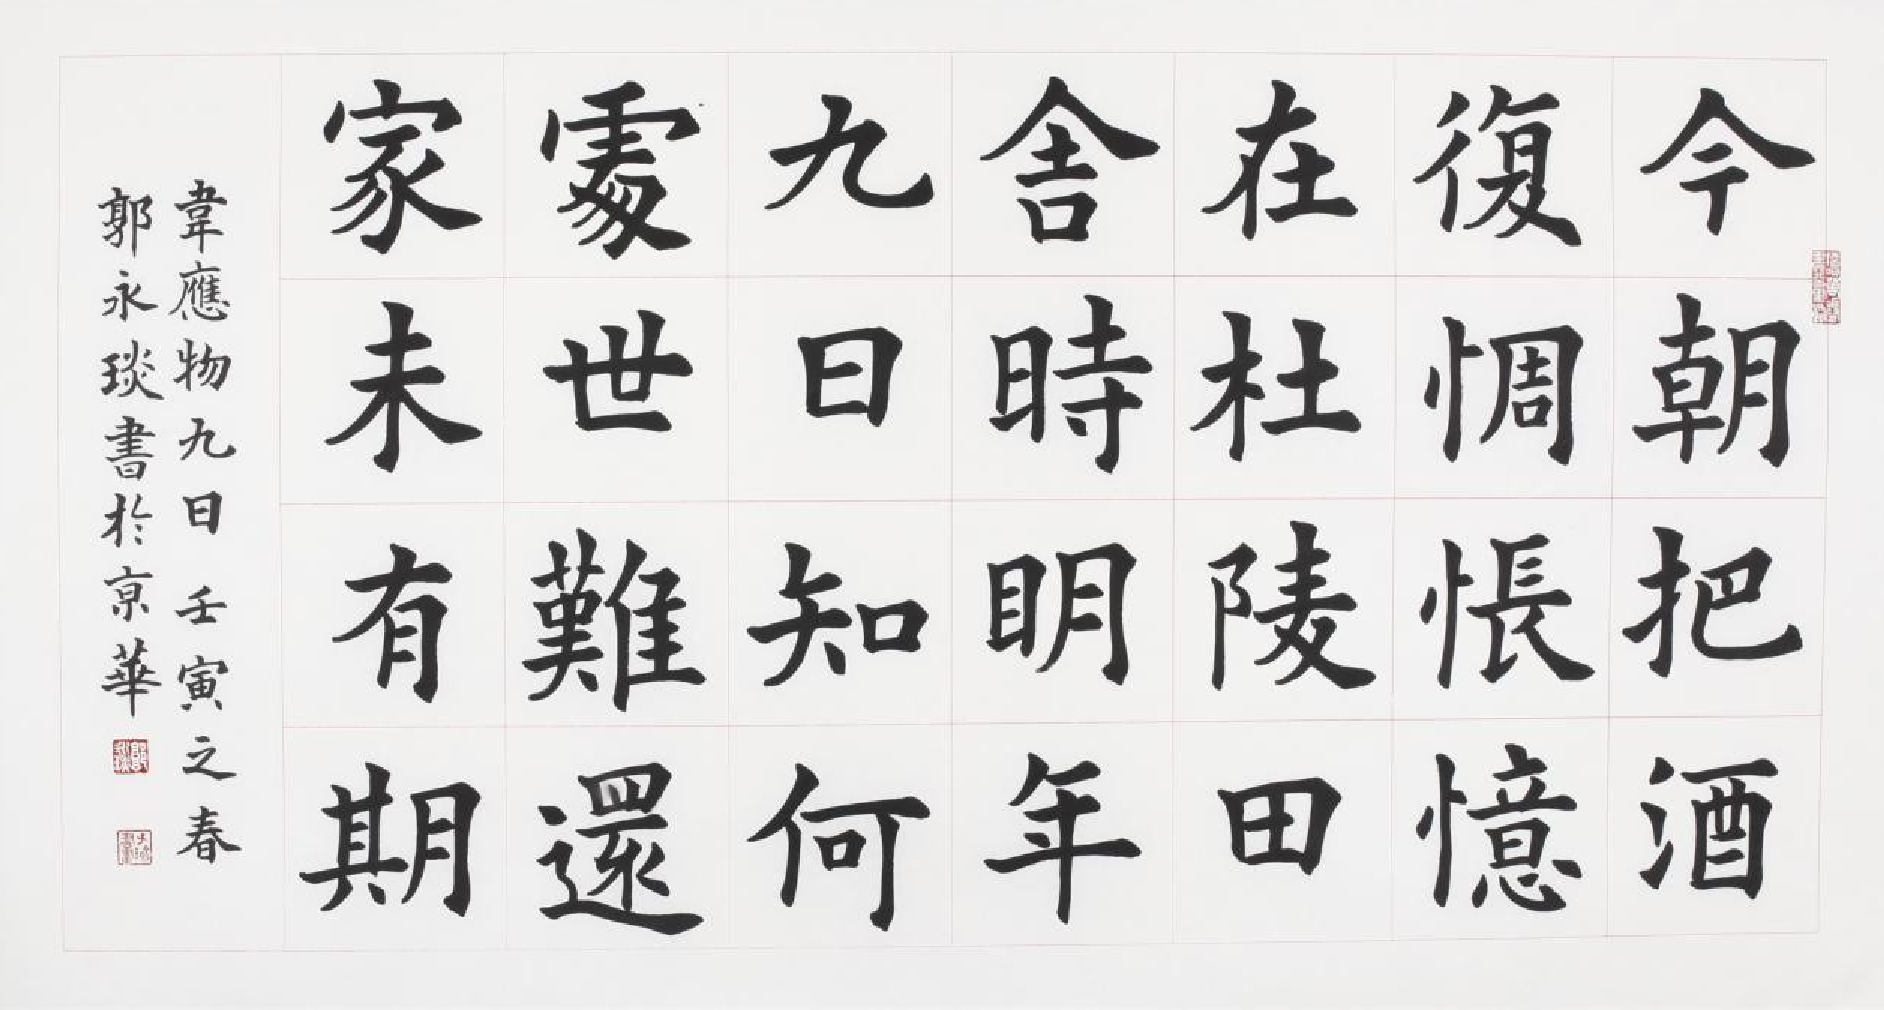 今朝把酒
復惆悵憶
在杜陵田
舍時明年
九日知何
處世難還
家未有期
韋應物九日 壬寅之春
郭永琰書於京華